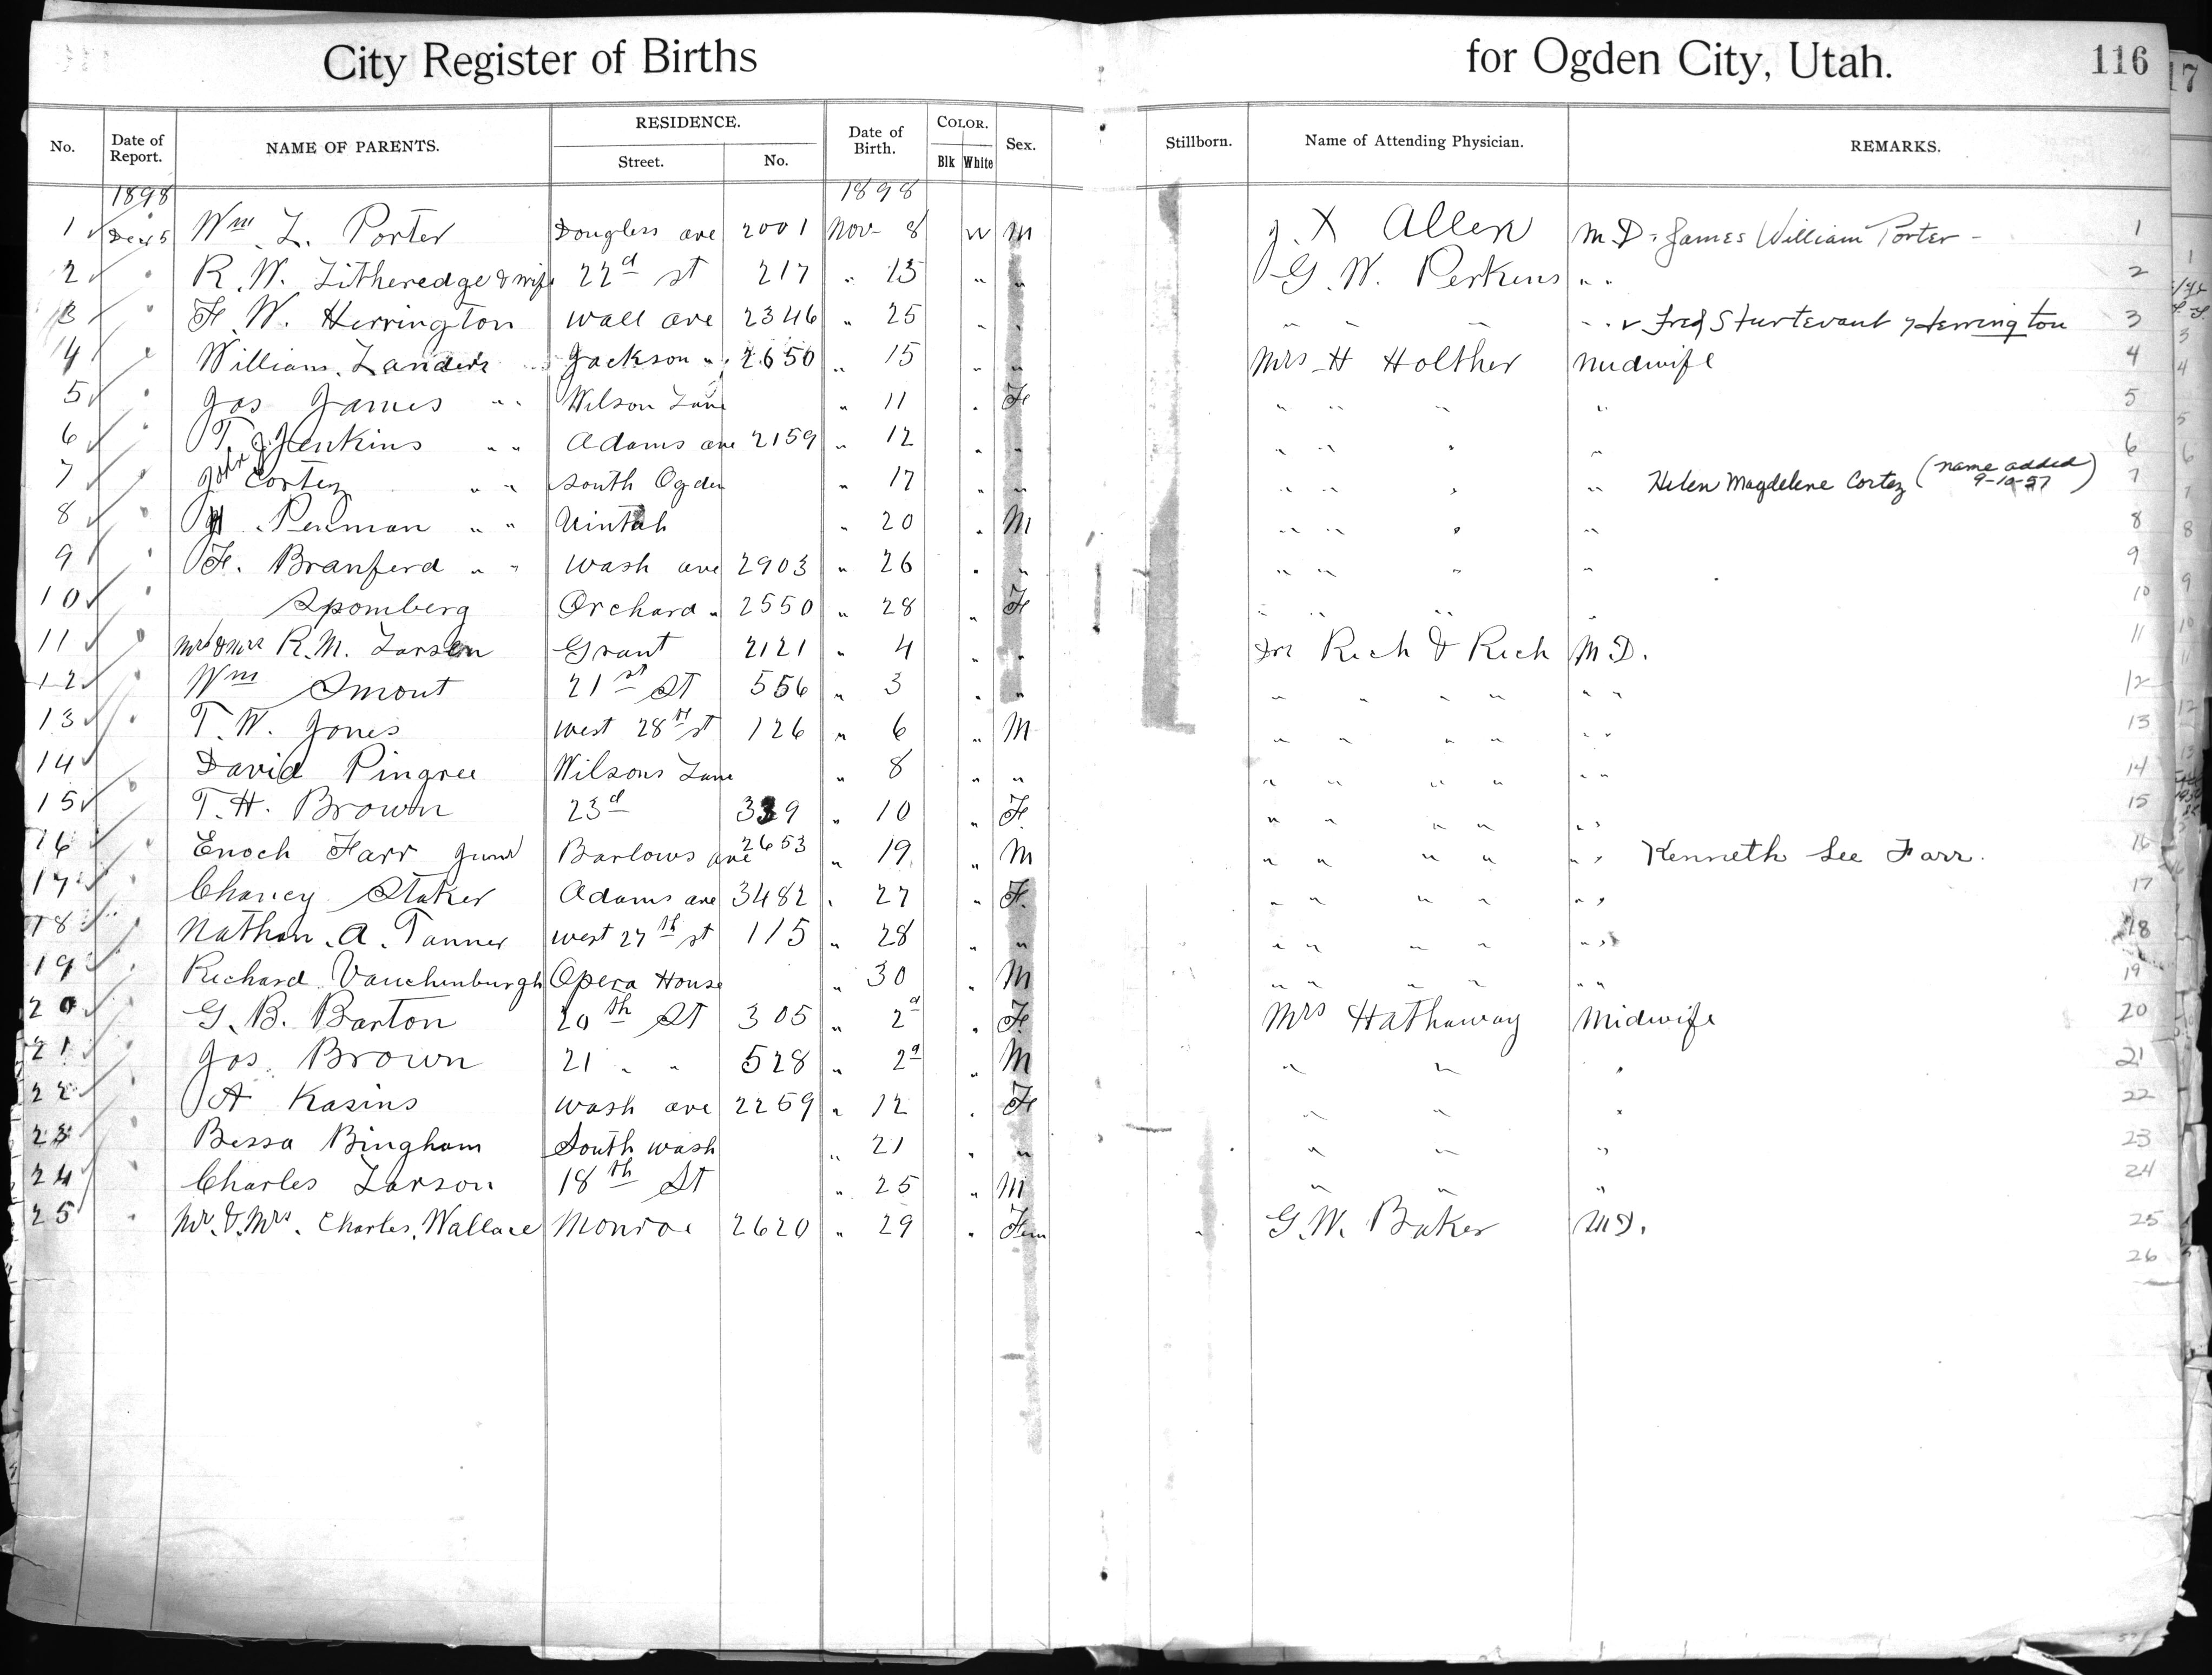 City Register of Births for Ogden City, Utah. 116
No. Date of Report. NAME OF PARENTS. RESIDENCE. Street. No. Date of Birth. COLOR. Blk White Sex. Stillborn. Name of Attending Physician. REMARKS.
1898 1898
1 Dec 5 Wm L. Porter Douglass ave 2001 Nov 8 W M J. X Allen M.D. James William Porter 1
2 " R. W. Litheredge & wife 22d st 217 " 13 " " G. W. Perkins " " 2
3 " F. W. Herrington Wall ave 2346 " 25 " " " " " " " Fred Sturtevant Herrington 3
4 " William Landers Jackson " 2650 " 15 " " Mrs H Holther Midwife 4
5 " Jos James " " Wilson Lane " 11 " F " " " " 5
6 " T. J. Jenkins " " Adams ave 2159 " 12 " " " " " " 6
7 " John Cortez " " South Ogden " 17 " " " " " " Helen Magdelene Cortez (name added 9-10-57) 7
8 " Penman " " Uintah " 20 " M " " " " 8
9 " F. Branferd " " Wash ave 2903 " 26 " " " " " " 9
10 " Spomberg Orchard " 2550 " 28 " F " " " " 10
11 " Mr & Mrs R. M. Larsen Grant 2121 " 4 " " Drs Rich & Rich M.D. 11
12 " Wm Smout 21st St 556 " 3 " " " " " " " " 12
13 " T. W. Jones West 28th st 126 " 6 " M " " " " " " 13
14 " David Pingree Wilsons Lane " 8 " " " " " " " " 14
15 " T. H. Brown 23d 339 " 10 " F. " " " " " " 15
16 " Enoch Farr Junr Barlows ave 2653 " 19 " M " " " " " " Kenneth Lee Farr. 16
17 " Chancy Staker Adams ave 3482 " 27 " F. " " " " " " 17
18 " Nathan. A. Tanner West 27th st 115 " 28 " " " " " " " " 18
19 " Richard Vauchenburgh Opera House " 30 " M " " " " " " 19
20 " G. B. Barton 20th St 305 " 2d " F. Mrs Hathaway Midwife 20
21 " Jos. Brown 21 " " 528 " 2d " M " " " 21
22 " A Kasins Wash ave 2259 " 12 " F " " " 22
23 " Bessa Bingham South Wash " 21 " " " " " 23
24 " Charles Larson 18th St " 25 " M " " " 24
25 " Mr. & Mrs. Charles. Wallace Monroe 2620 " 29 " Fem G. W. Baker M.D. 25
26